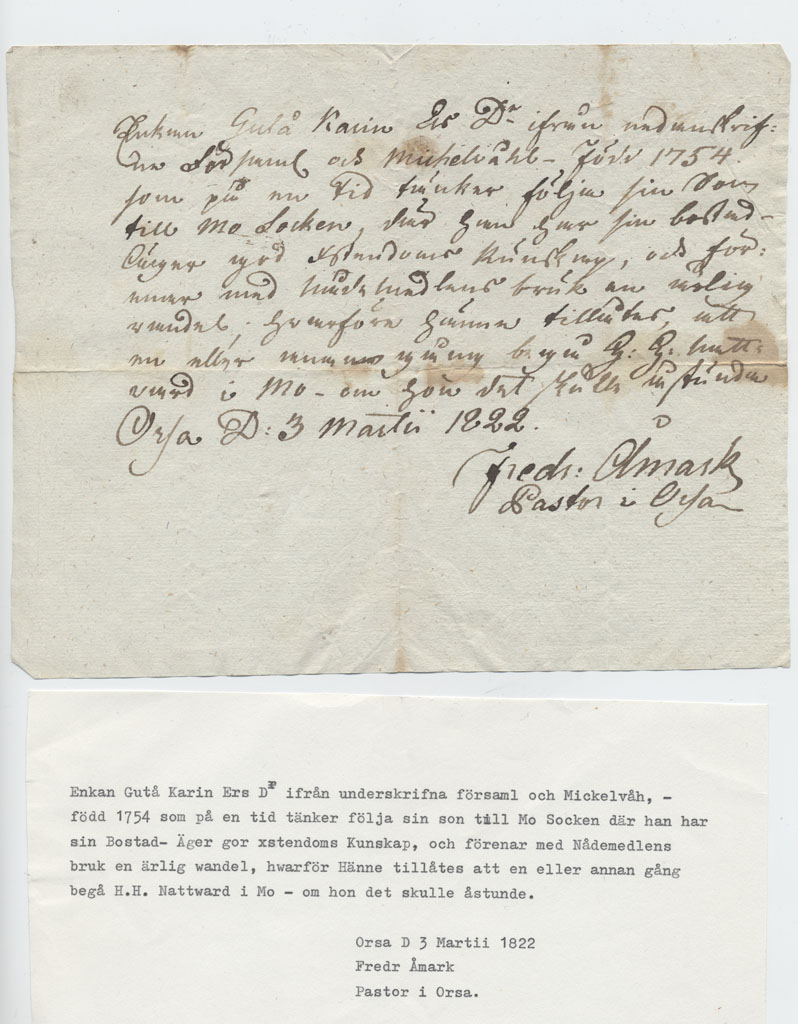 Enkan Gutå Karin Ers Dr ifrån nedanskrif:
ne Församl och Michelvåhl - född 1754.
som på en tid tänker följa sin Son
till Mo Socken, der han har sin bostad -
äger god Xstendoms Kunskap, och för:
enar med Nådemedlens bruk en ärlig
vandel; hvarföre Hänne tillåtes, att
en eller annan gång begå H: H: Natt:
vard i Mo - om hon det skulle åstunda
Orsa D: 3 Martii 1822.
Fredr: Åmark
Pastor i Orsa
Enkan Gutå Karin Ers Dr ifrån underskrifna församl och Mickelvåh, -
född 1754 som på en tid tänker följa sin son till Mo Socken där han har
sin Bostad- Äger gor xstendoms Kunskap, och förenar med Nådemedlens
bruk en ärlig wandel, hwarför Hänne tillåtes att en eller annan gång
begå H.H. Nattward i Mo - om hon det skulle åstunde.
Orsa D 3 Martii 1822
Fredr Åmark
Pastor i Orsa.